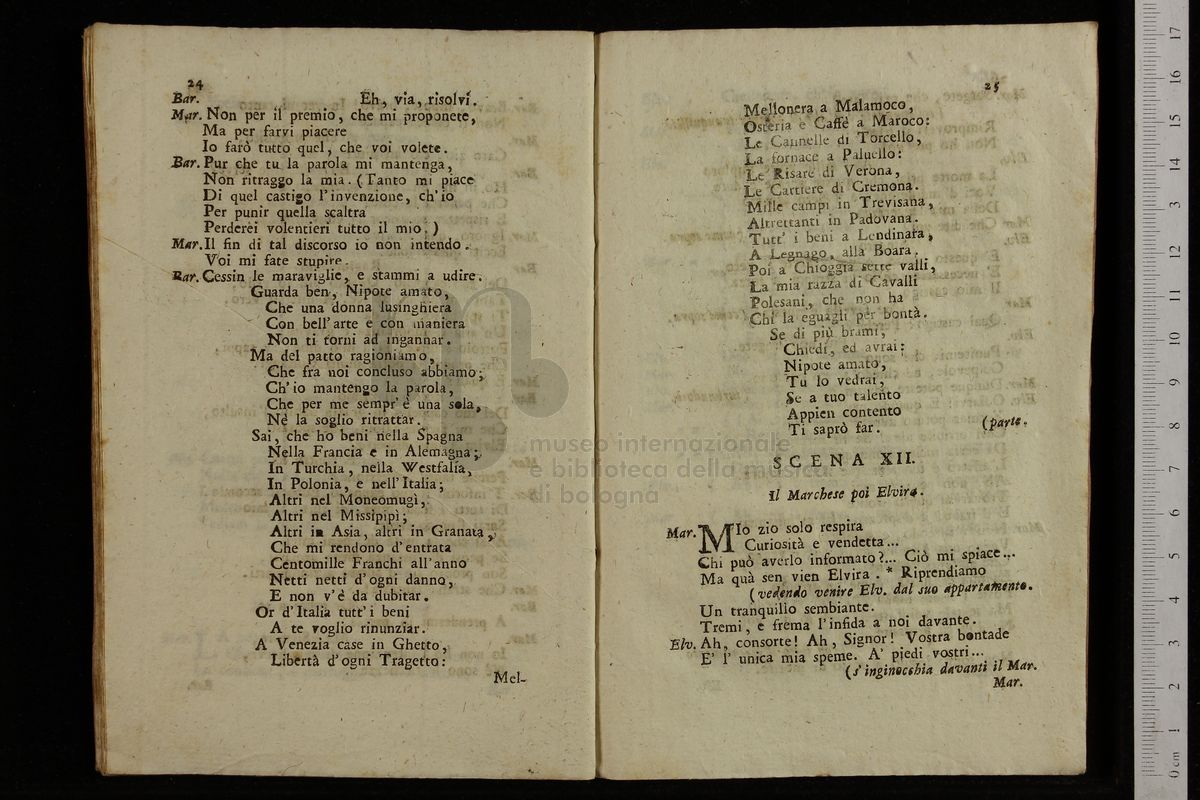 24
Bar. Eh, via, risolvi.
Mar. Non per il premio, che mi proponete,
Ma per farvi piacere
Io farò tutto quel, che voi volete.
Bar. Pur che tu la parola mi mantenga,
Non ritraggo la mia. (Tanto mi piace
Di quel castigo l'invenzione, ch'io
Per punir quella scaltra
Perderei volentieri tutto il mio.)
Mar. Il fin di tal discorso io non intendo.
Voi mi fate stupire.
Bar. Cessin le maraviglie, e stammi a udire.
Guarda ben, Nipote amato,
Che una donna lusinghiera
Con bell'arte e con maniera
Non ti torni ad ingannar.
Ma del patto ragioniamo,
Che fra noi concluso abbiamo;
Ch'io mantengo la parola,
Che per me sempr'è una sola,
Nè la soglio ritrattar.
Sai, che ho beni nella Spagna
Nella Francia e in Alemagna;
In Turchia, nella Westfalia,
In Polonia, e nell'Italia;
Altri nel Moneomugì,
Altri nel Missipipì;
Altri in Asia, altri in Granata,
Che mi rendono d'entrata
Centomille Franchi all'anno
Netti netti d'ogni danno,
E non v'è da dubitar.
Or d'Italia tutt'i beni
A te voglio rinunziar.
A Venezia case in Ghetto,
Libertà d'ogni Tragetto:
Mel-
25
Mellonera a Malamoco,
Osteria e Caffè a Maroco:
Le Cannelle di Torcello,
La fornace a Paluello:
Le Risare di Verona,
Le Cartiere di Cremona.
Mille campi in Trevisana,
Altrettanti in Padovana.
Tutt' i beni a Lendinara,
A Legnago, alla Boara.
Poi a Chioggia sette valli,
La mia razza di Cavalli
Polesani, che non ha
Chi la eguagli per bontà.
Se di più brami,
Chiedi, ed avrai:
Nipote amato,
Tu lo vedrai,
Se a tuo talento
Appien contento
Ti saprò far. (parte.
SCENA XII.
Il Marchese poi Elvira.
Mar. MIo zio solo respira
Curiosità e vendetta...
Chi può averlo informato?... Ciò mi spiace...
Ma quà sen vien Elvira. * Riprendiamo
(vedendo venire Elv. dal suo appartamento.
Un tranquillo sembiante.
Tremi, e frema l'infida a noi davante.
Elv. Ah, consorte! Ah, Signor! Vostra bontade
E' l' unica mia speme. A' piedi vostri...
(s'inginocchia davanti il Mar.
Mar.
museo internazionale
e biblioteca della musica
di bologna